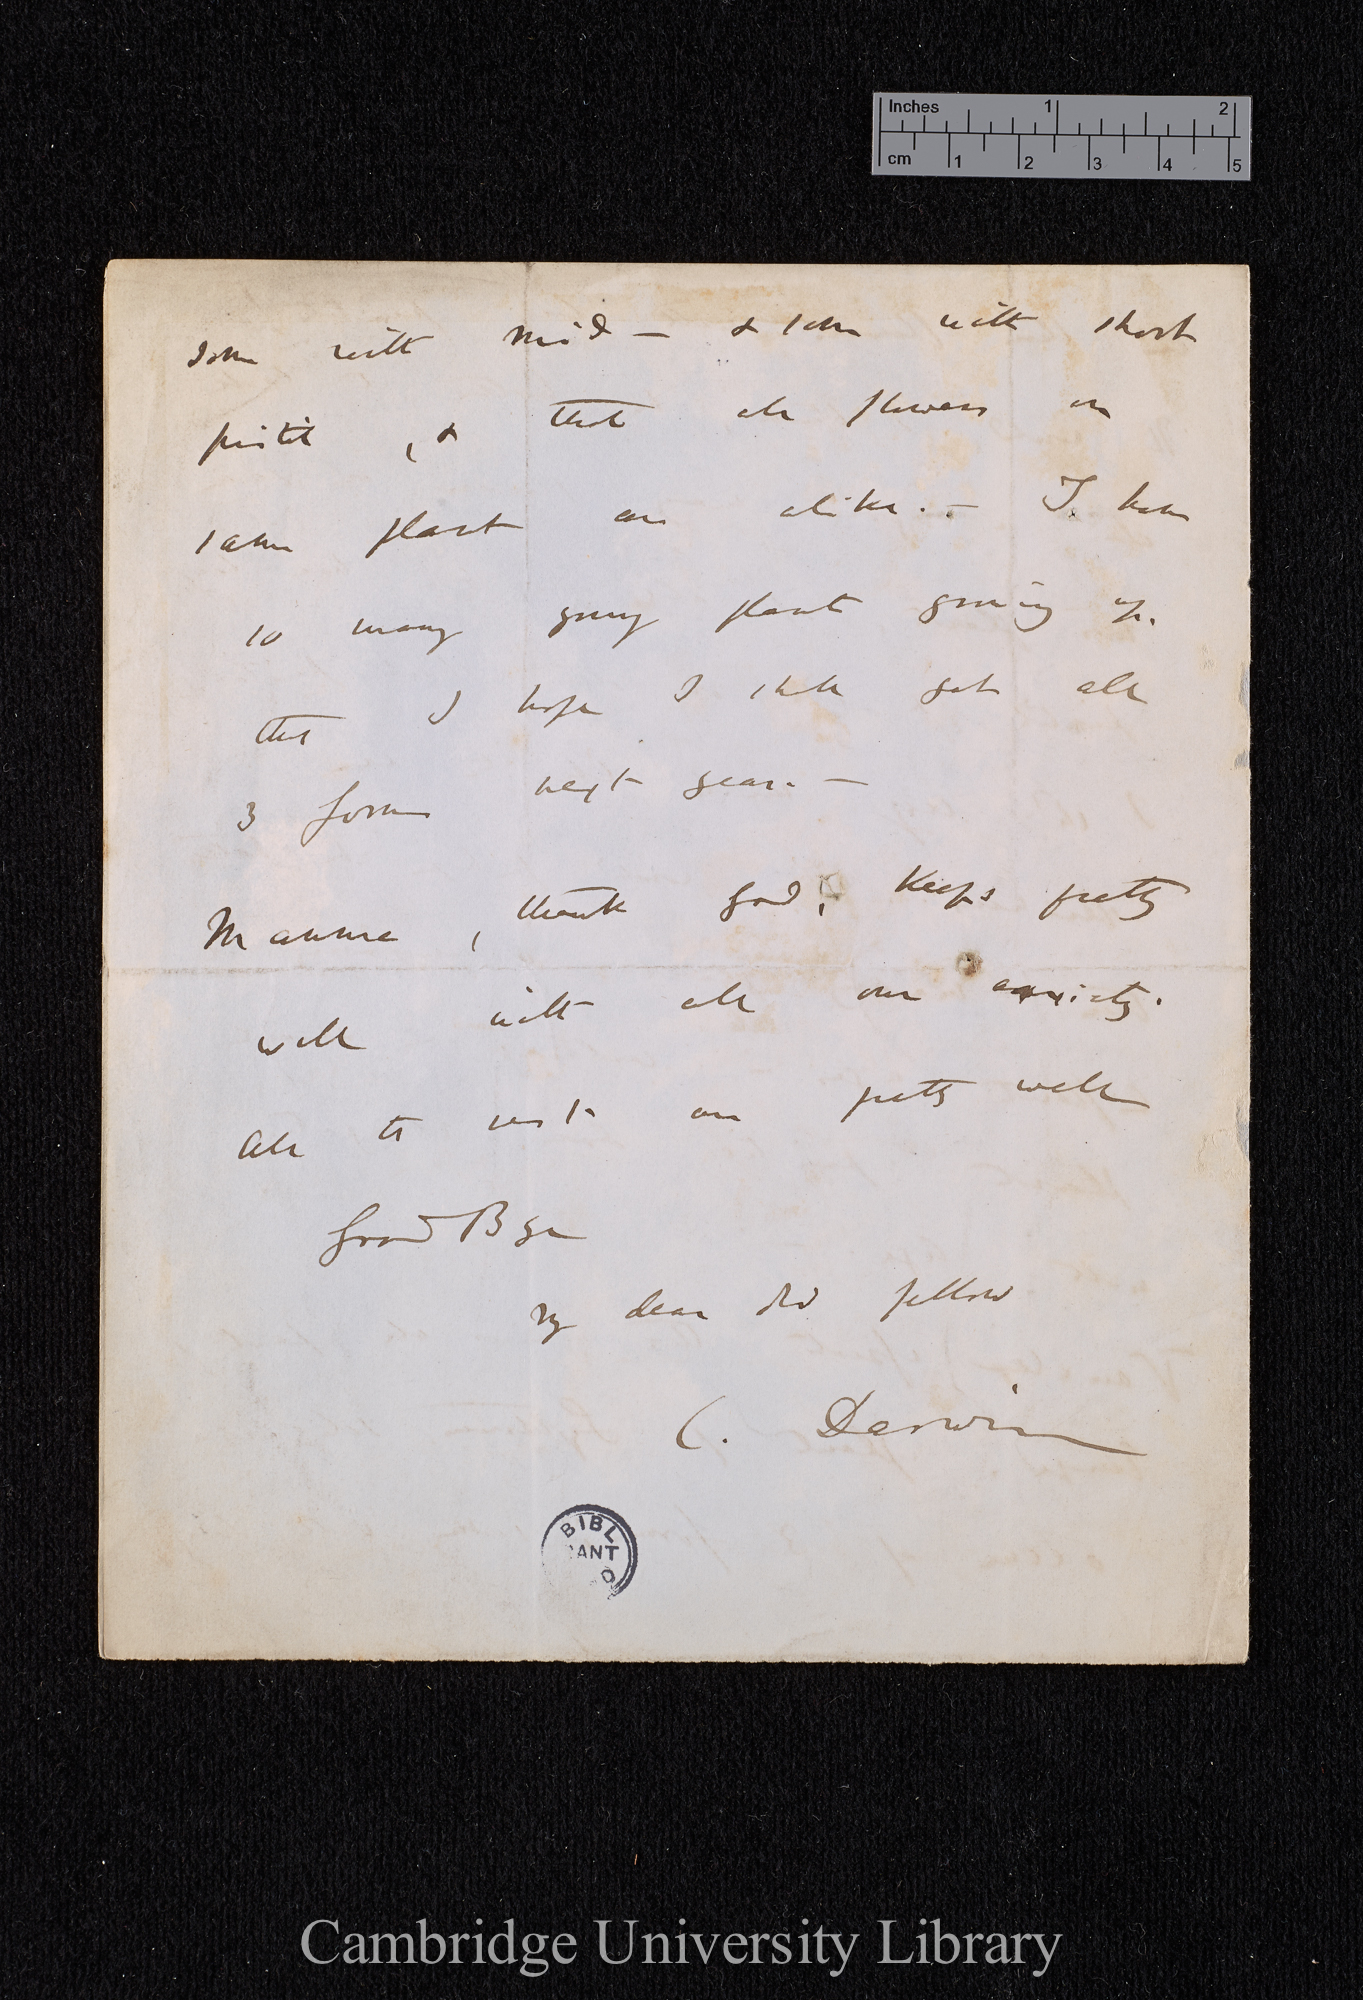 Inches 1 2
cm 1 2 3 4 5
some with mid — & some with short
pistil, & that all flowers on
same plant are alike. — I have
so many young plants growing up.
that I hope I shall get all
3 forms next year. —
Mamma, thank God, keeps pretty
well with all our anxiety.
All the rest are pretty well
Good Bye
My dear old fellow
C. Darwin
BIBL
ANT
O
Cambridge University Library